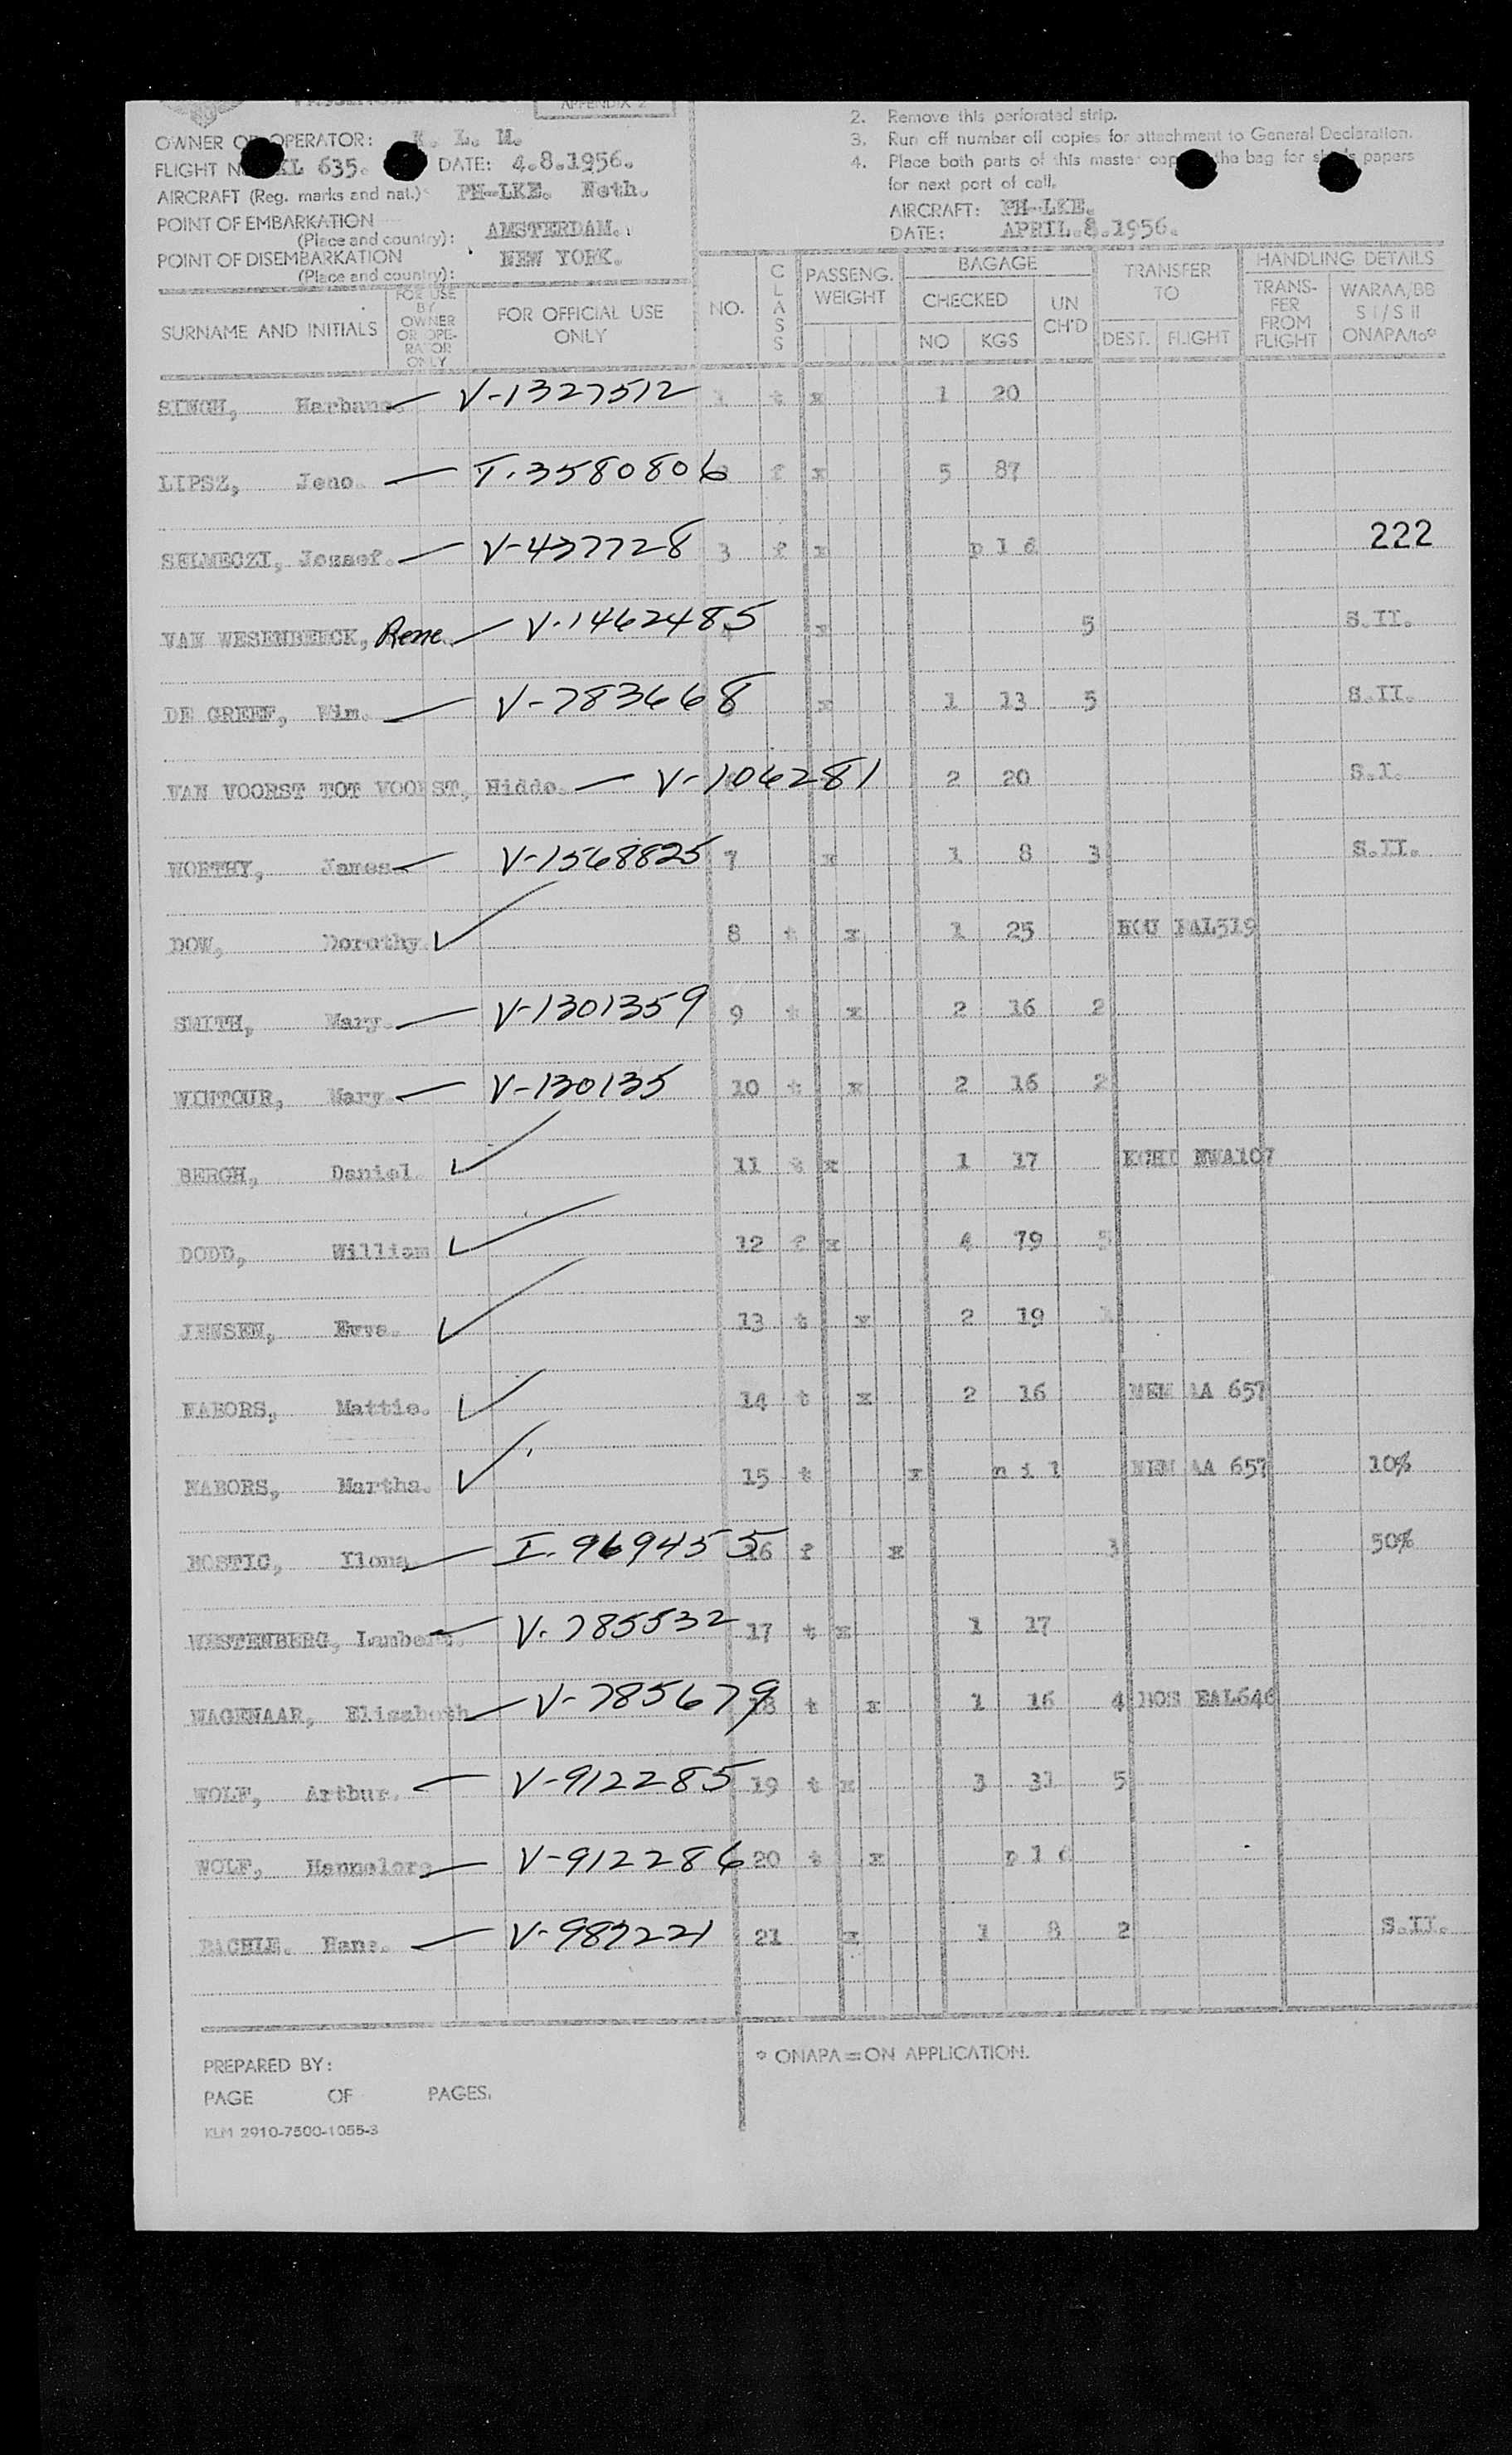 APPENDIX 2
OWNER OR OPERATOR: K. L. M.
FLIGHT N KL 635. DATE: 4.8.1956.
AIRCRAFT (Reg. marks and nat.): PH-LKE. Neth.
POINT OF EMBARKATION
(Place and country): AMSTERDAM.
POINT OF DISEMBARKATION
(Place and country): NEW YORK.
2. Remove this perforated strip.
3. Run off number off copies for attachment to General Declaration.
4. Place both parts of this master cop the bag for papers
for next port of call.
AIRCRAFT: PH-LKE.
DATE: APRIL.8.1956.
SURNAME AND INITIALS
FOR USE BY OWNER OR OPE-RATOR ONLY
FOR OFFICIAL USE ONLY
NO. CLASS PASSENG. WEIGHT
BAGAGE
CHECKED NO KGS UN CH'D
TRANSFER TO DEST. FLIGHT
HANDLING DETAILS
TRANS-FER FROM FLIGHT
WARAA/BB S I / S II ONAPA/to*
SINGH, Harbans. V-1327512 1 t x 1 20
LIPSZ, Jeno. I.3580806 f x 5 87
SELMECZI, Jozsef. V-437728 3 f x p l d 222
VAN WESENBEECK, Rene. V.1462485 4 x 5 S.II.
DE GREEF, Wim. V-783668 x 1 13 5 S.II.
VAN VOORST TOT VOORST, Hiddo. V-106281 2 20 S.I.
WORTHY, James. V-1568825 7 x 1 8 3 S.II.
DOW, Dorothy. 8 t x 1 25 HOU EAL519
SMITH, Mary. V-1301359 9 t x 2 16 2
WINTOUR, Mary. V-130135 10 t x 2 16 2
BERGH, Daniel. 11 t x 1 17 NWA107
DODD, William 12 f x 4 79 5
JENSEN, 13 t x 2 19
NABORS, Mattie. 14 t x 2 16 MEM AA 657
NABORS, Martha. 15 t x n i l MEM AA 657 10%
BOSTIG, Ilona. I.969455 16 f x 3 50%
WESTENBERG, Lambert. V.785532 17 t x 1 17
WAGENAAR, Elisabeth V-785679 18 t x 1 16 4 BOS EAL646
WOLF, Arthur. V-912285 19 t x 3 31 5
WOLF, Hannelore V-912286 20 t x p l d
BACHLE. Hans. V-987221 21 x 1 8 2 S.II.
PREPARED BY:
PAGE OF PAGES.
KLM 2910-7500-1055-3
* ONAPA=ON APPLICATION.